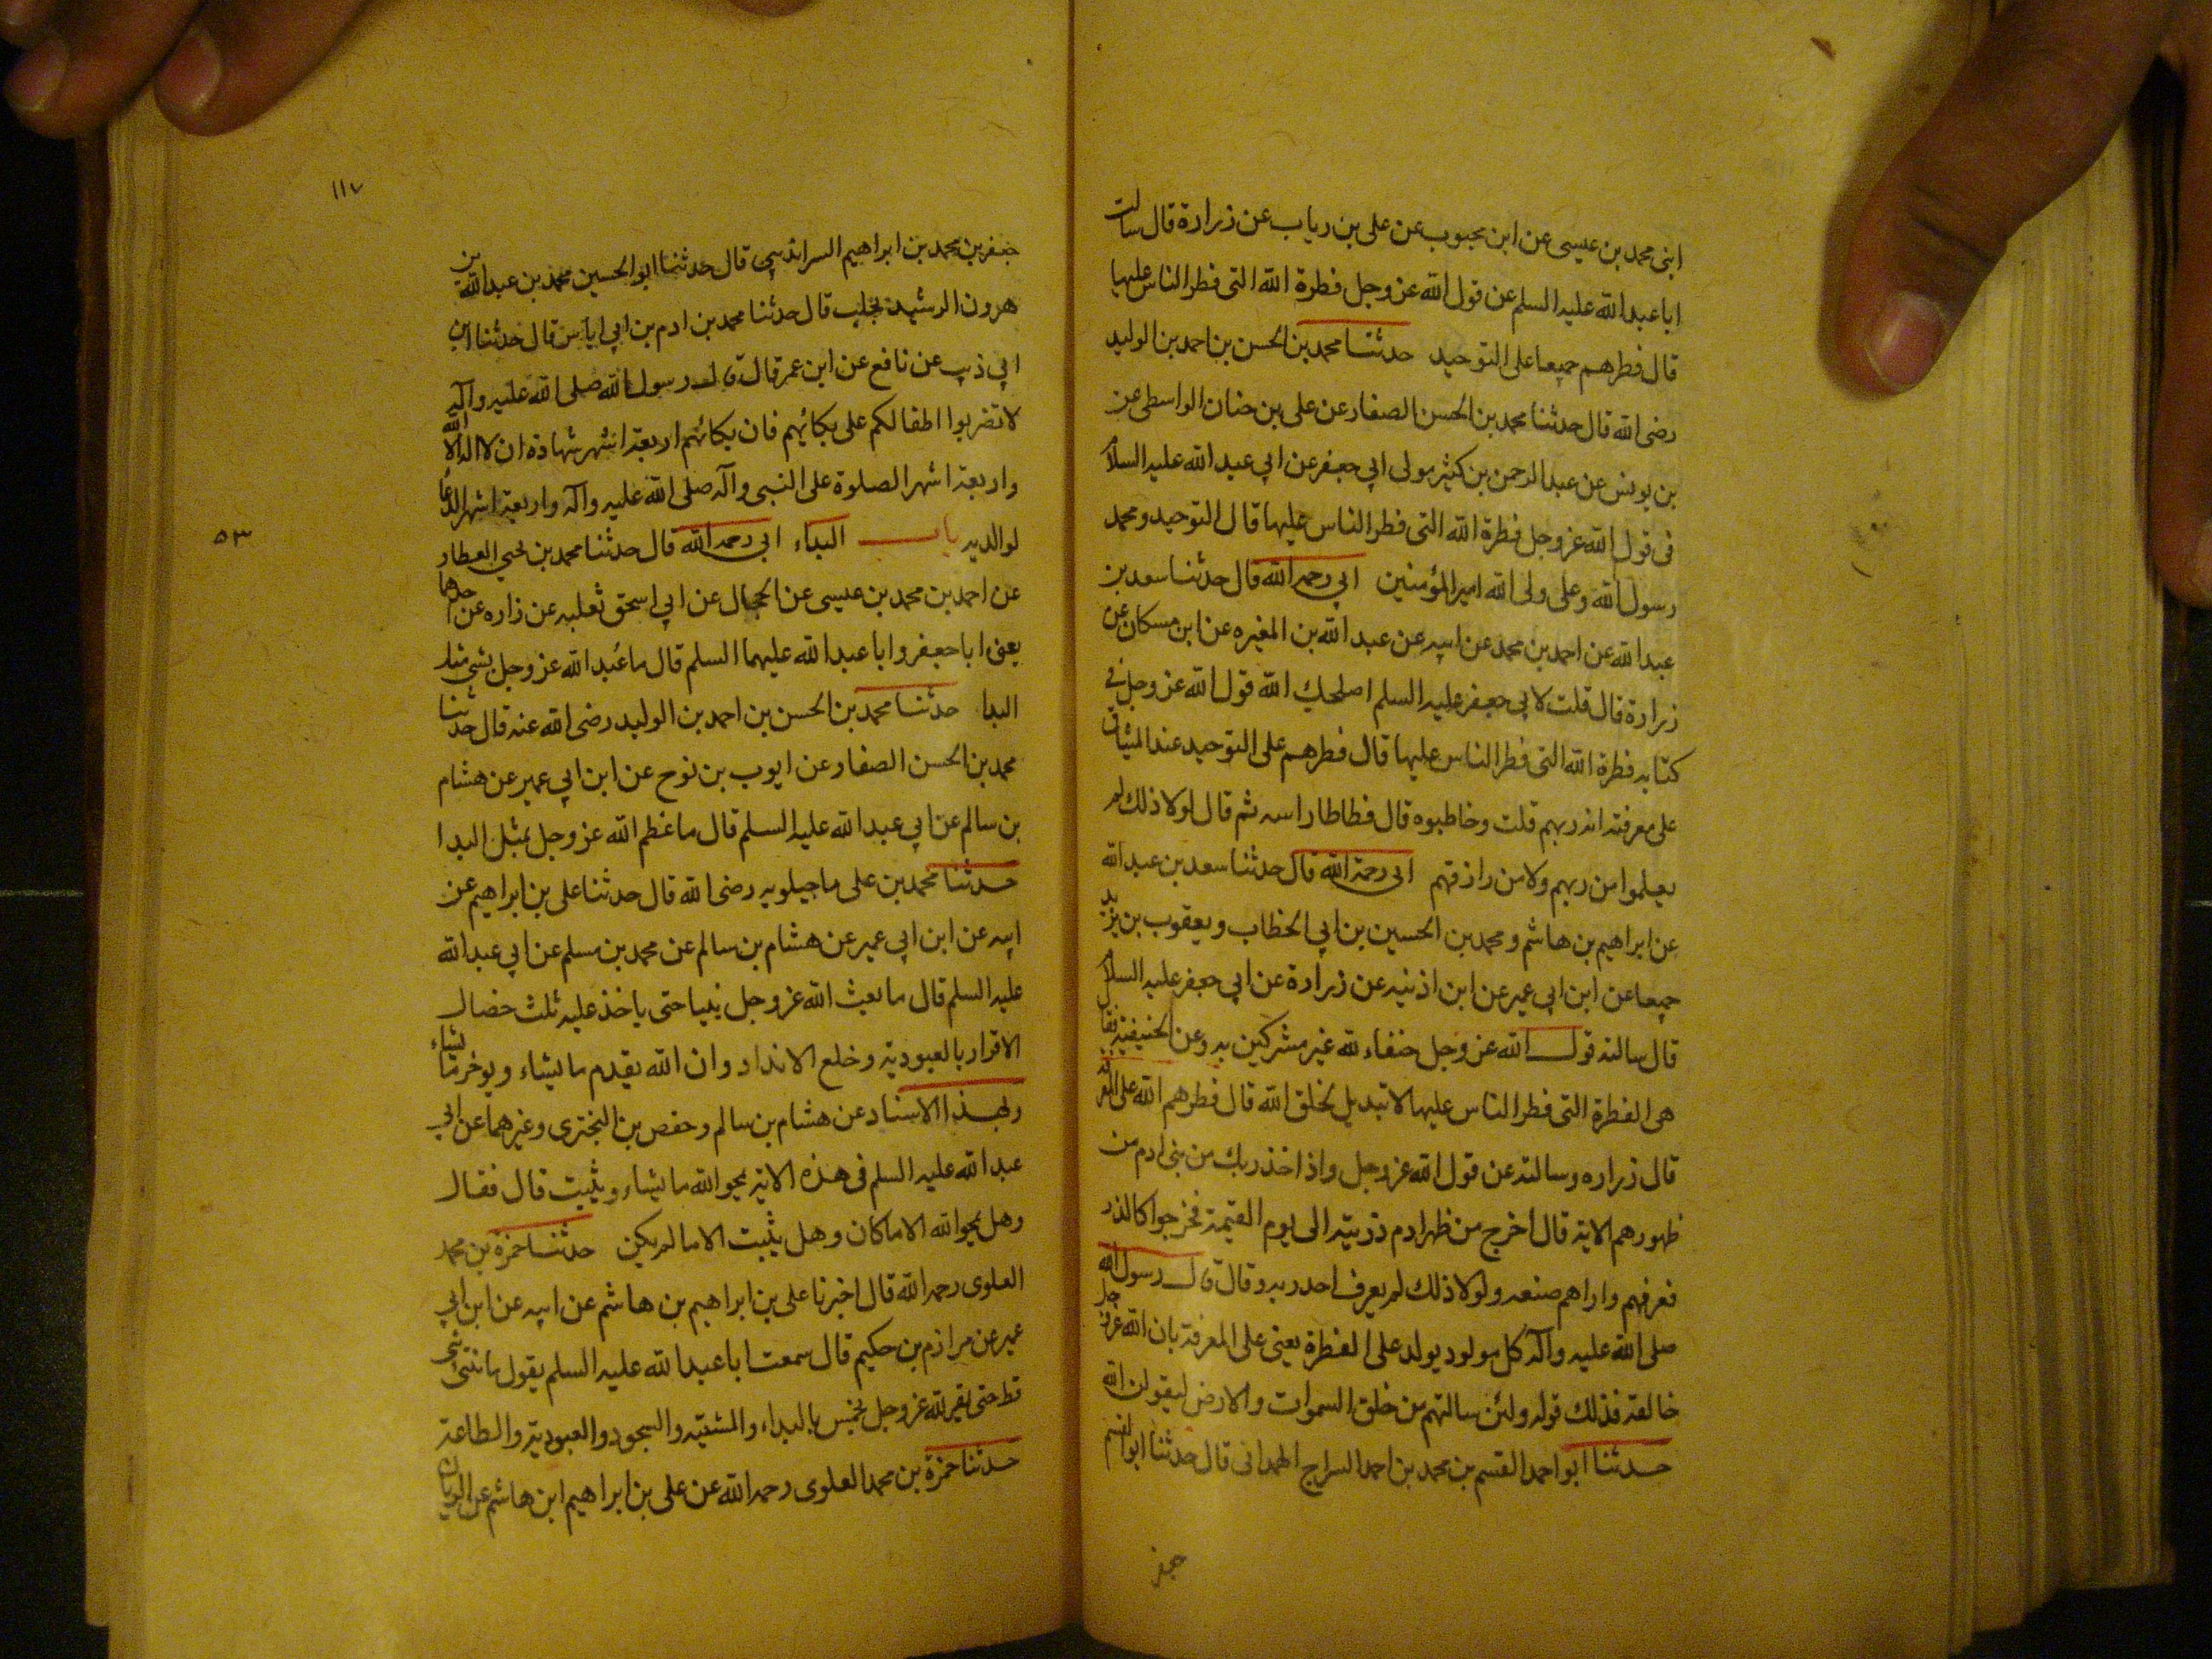 ابنى محمد بن عيسى عن ابن محبوب عن على بن رياب عن زرارة قال سالت
ابا عبد الله عليه السلم عن قول الله عز وجل فطرة الله التى فطر الناس عليها
قال فطرهم جميعا على التوحيد حدثنا محمد بن الحسن بن احمد بن الوليد
رضى الله قال حدثنا محمد بن الحسن الصفار عن على بن حنان الواسطى عن
بن يونس عن عبد الرحمن بن كثير مولى ابي جعفر عن ابي عبد الله عليه السلام
فى قول الله عز وجل فطرة الله التى فطر الناس عليها قال التوحيد ومحمد
رسول الله وعلى ولى الله امير المؤمنين ابي رحمه الله قال حدثنا سعد بن
عبد الله عن احمد بن محمد عن ابيه عن عبد الله بن المغيره عن ابن مسكان عن
زرارة قال قلت لابي جعفر عليه السلم اصلحك الله قول الله عز وجل فى
كتابه فطرة الله التى فطر الناس عليها قال فطرهم على التوحيد عند الميثاق
على معرفته انه ربهم قلت وخاطبوه قال فطاطا راسه ثم قال لولا ذلك لم
يعلموا من ربهم ولا من رازقهم ابى رحمة الله قال حدثنا سعد بن عبد الله
عن ابراهيم بن هاشم ومحمد بن الحسين بن ابي الخطاب ويعقوب بن يزيد
جميعا عن ابن ابي عمير عن ابن اذنيه عن زرارة عن ابي جعفر عليه السلام
قال سالته قول الله عز وجل حنفاء لله غير مشركين به وعن الحنيفية فقال
هى الفطرة التى فطر الناس عليها لا تبديل لخلق الله قال فطرهم الله على المعرفة
قال زراره وسالته عن قول الله عز وجل واذ اخذ ربك من بنى ادم من
ظهورهم الاية قال اخرج من ظهر ادم ذريته الى يوم القيمة فخرجوا كالذر
فعرفهم واراهم صنعه ولولا ذلك لم يعرف احد ربه وقال قال رسول الله
صلى الله عليه وآله كل مولود يولد على الفطرة يعنى على المعرفة بان الله عز وجل
خالقه فذلك قوله ولئن سالتهم من خلق السموات والارض ليقولن الله
حدثنا ابو احمد القسم بن محمد بن احمد السراج الهمدانى قال حدثنا ابو القسم
جعفر
١١٧
جعفر بن محمد بن ابراهيم السرانديبى قال حدثنا ابو الحسين محمد بن عبد الله بن
هرون الرشيد بحلب قال حدثنا محمد بن ادم بن ابي اياس قال حدثنا ابن
ابي ذيب عن نافع عن ابن عمر قال قال رسول الله صلى الله عليه وآله
لا تضربوا اطفالكم على بكائهم فان بكائهم اربعة اشهر شهادة ان لا اله الا الله
واربعة اشهر الصلوة على النبى وآله صلى الله عليه وآله واربعة اشهر الدعا
لوالديه باب البداء ابي رحمه الله قال حدثنا محمد بن يحيي العطار
٥٣
عن احمد بن محمد بن عيسى عن الحجال عن ابي اسحق ثعلبه عن زاره عن احدهما
يعنى ابا جعفر وابا عبد الله عليهما السلم قال ما عُبد الله عز وجل بشى مثل
البدا حدثنا محمد بن الحسن بن احمد بن الوليد رضى الله عنه قال حدثنا
محمد بن الحسن الصفار عن ايوب بن نوح عن ابن ابي عمير عن هشام
بن سالم عن ابي عبد الله عليه السلم قال ما عظم الله عز وجل بمثل البدا
حدثنا محمد بن على ماجيلويه رضى الله قال حدثنا على بن ابراهيم عن
ابيه عن ابن ابي عمير عن هشام بن سالم عن محمد بن مسلم عن ابي عبد الله
عليه السلم قال ما بعث الله عز وجل نبيا حتى ياخذ عليه ثلث خصال
الاقرار بالعبودية وخلع الانداد وان الله يقدم ما يشاء ويوخر ما يشاء
وبهذا الاسناد عن هشام بن سالم وحفص بن البخترى وغيرهما عن ابي
عبد الله عليه السلم فى هذه الاية يمحو الله ما يشاء ويثبت قال فقال
وهل يمحو الله الا ما كان وهل يثبت الا ما لم يكن حدثنا حمزة بن محمد
العلوى رحمه الله قال اخبرنا على بن ابراهيم بن هاشم عن ابيه عن ابن ابي
عمير عن مرازم بن حكيم قال سمعت ابا عبد الله عليه السلم يقول ما تنبى نبى
قط حتى يقر لله عز وجل بخمس بالبداء والمشية والسجود والعبودية والطاعة
حدثنا حمزة بن محمد العلوى رحمه الله عن على بن ابراهيم ابن هاشم عن الريان